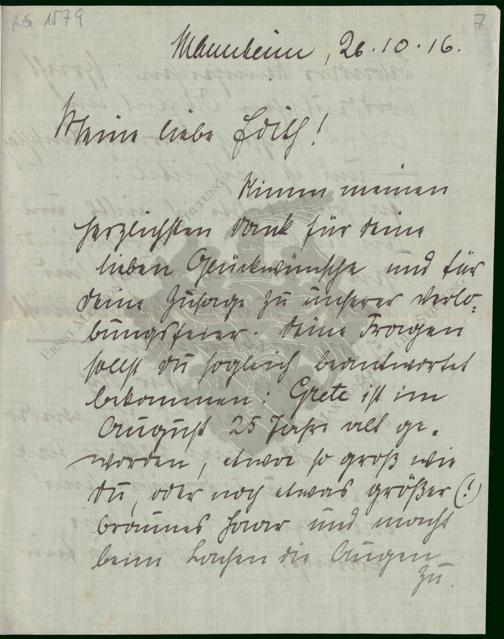 AG 1579
7
Mannheim, 26.10.16.
Meine liebe Edith!
Nimm meinen
herzlichsten Dank für deine
lieben Glückwünsche und für
deine Zusage zu unserer Verlo-
bungsfeier. Deine Fragen
sollst du sogleich beantwortet
bekommen: Grete ist im
August 25 Jahre alt ge-
worden, etwa so groß wie
du, oder noch etwas größer (!)
braunes Haar und macht
beim Lachen die Augen
zu.